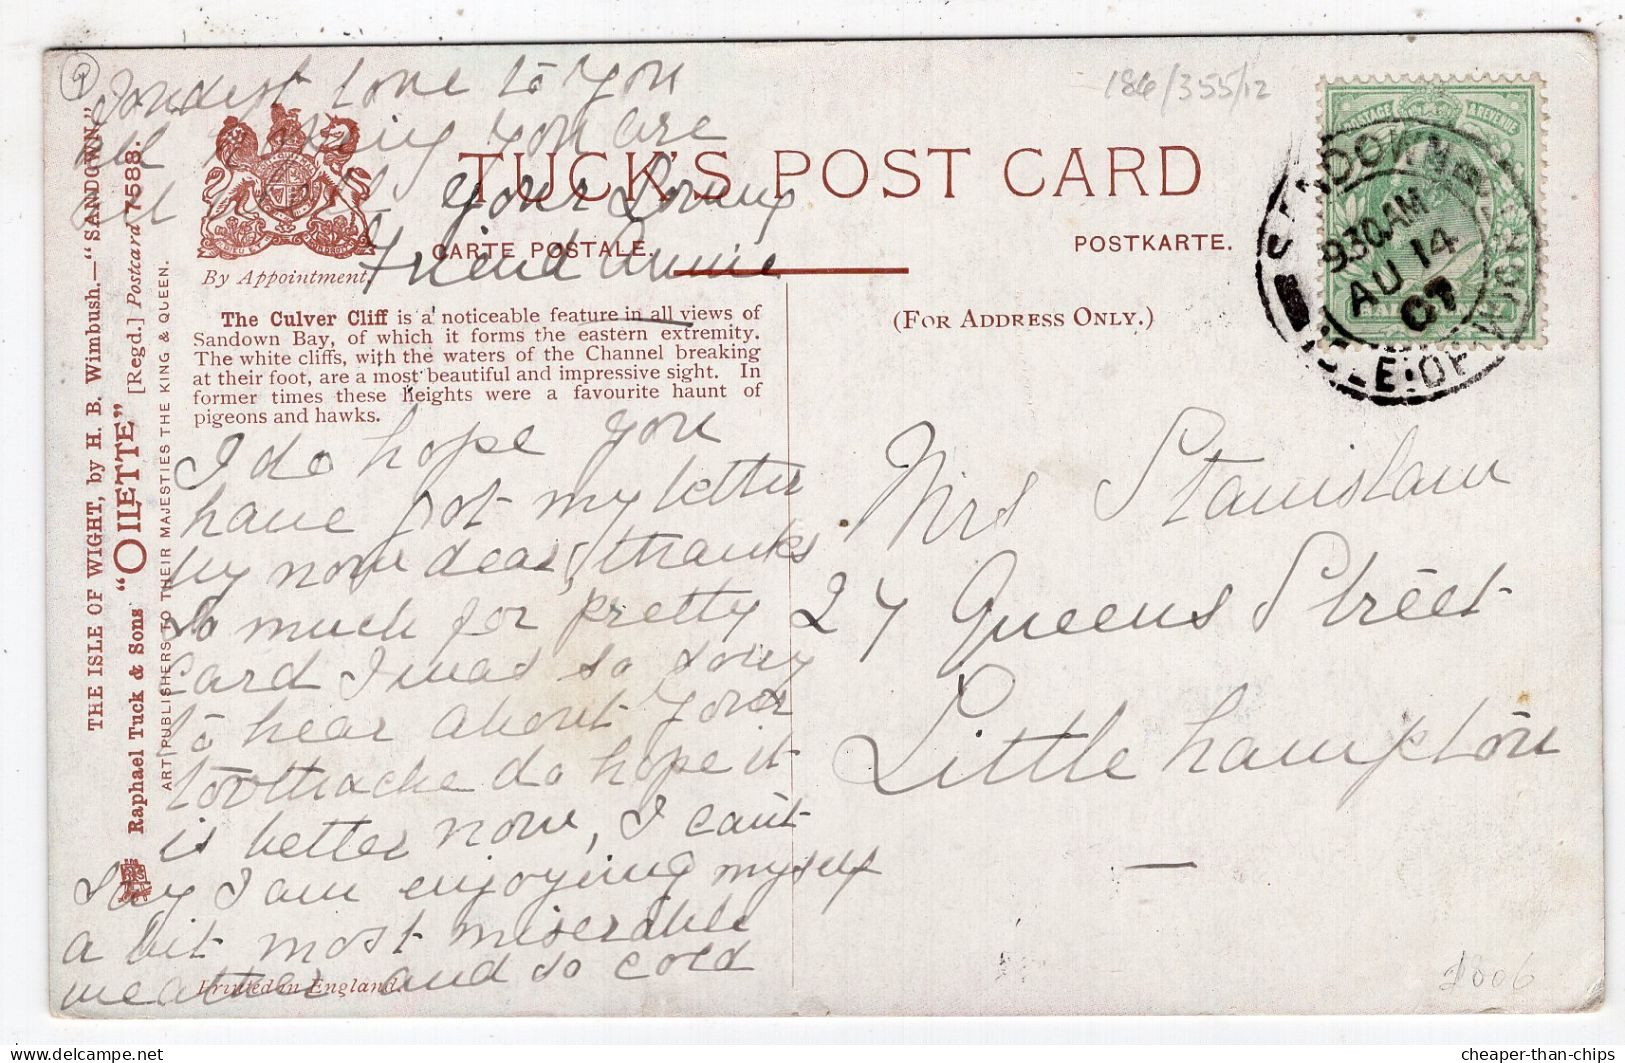 Fondest love to You
all hoping You are
all well Your Loving
Friend Annie
184/355/12
TUCK'S POST CARD
CARTE POSTALE.
POSTKARTE.
By Appointment.
(FOR ADDRESS ONLY.)
POSTAGE & REVENUE
SANDOWN
930AM
AU 14
07
ISLE OF WIGHT
THE ISLE OF WIGHT, by H. B. Wimbush.—"SANDOWN."
Raphael Tuck & Sons' "OILETTE" [Regd.] Postcard 7588.
ART PUBLISHERS TO THEIR MAJESTIES THE KING & QUEEN.
The Culver Cliff is a noticeable feature in all views of
Sandown Bay, of which it forms the eastern extremity.
The white cliffs, with the waters of the Channel breaking
at their foot, are a most beautiful and impressive sight. In
former times these heights were a favourite haunt of
pigeons and hawks.
I do hope you
have got my letter
by now dear, thanks
so much for pretty
card I was so sorry
to hear about Your
toothache do hope it
is better now, I can't
say I am enjoying myself
a bit most miserable
weather and so cold
Printed in England.
Mrs Stanislaw
27 Queens Street
Little hampton
cheaper-than-chips